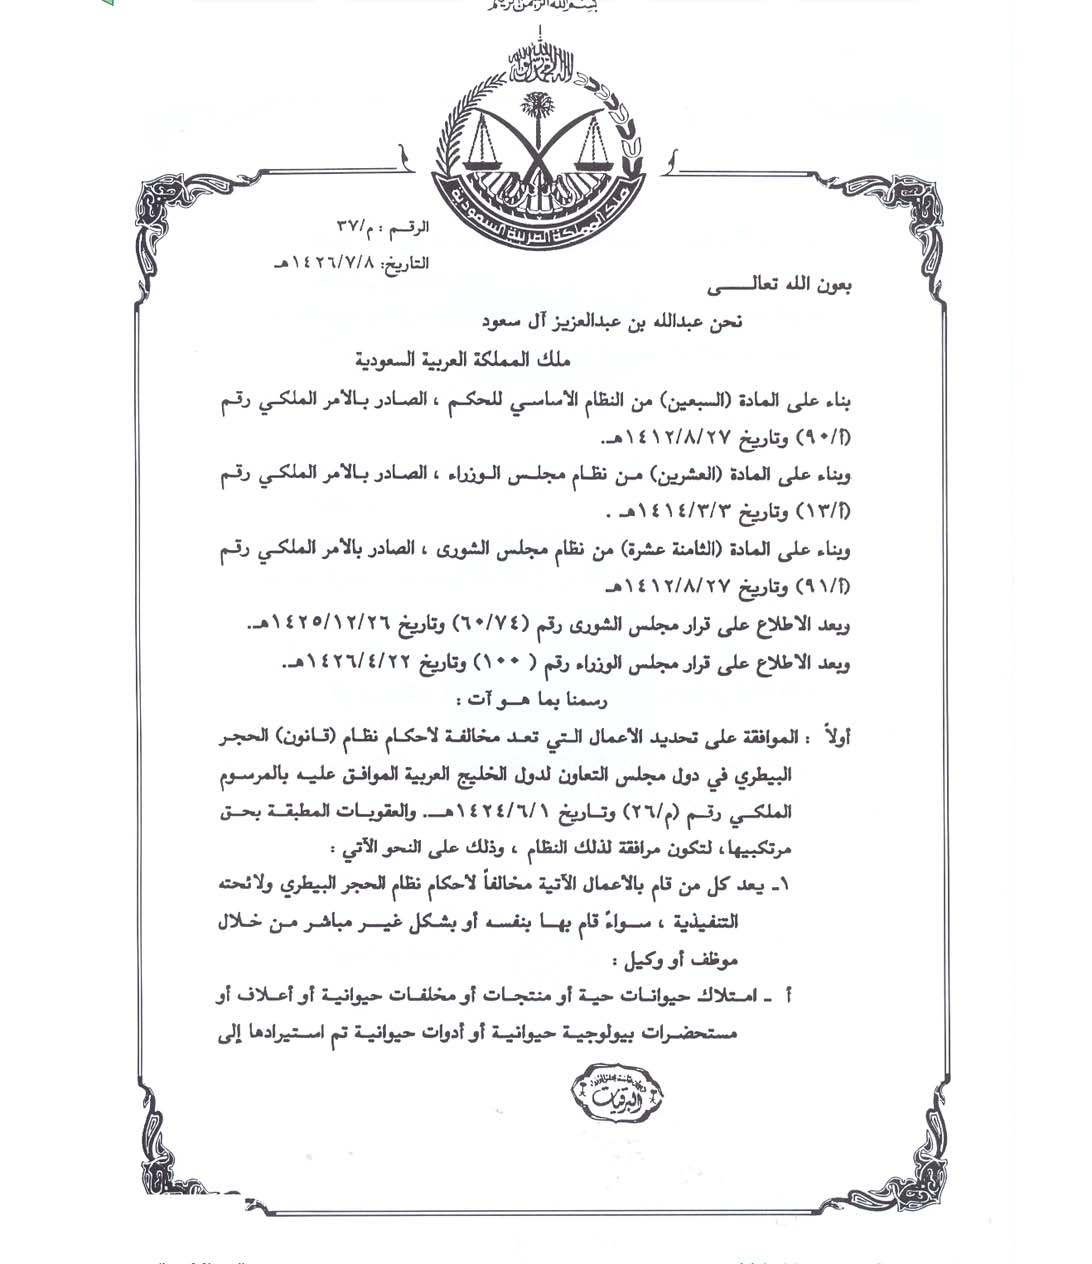 بسم الله الرحمن الرحيم
ملك المملكة العربية السعودية
الرقـم : م/٣٧
التاريخ: ١٤٢٦/٧/٨هـ
بعون الله تعالـــــى
نحن عبدالله بن عبدالعزيز آل سعود
ملك المملكة العربية السعودية
بناء على المادة (السبعين) من النظام الأساسي للحكم ، الصادر بالأمر الملكي رقم
(أ/٩٠) وتاريخ ١٤١٢/٨/٢٧هـ.
وبناء على المادة (العشرين) من نظام مجلس الوزراء ، الصادر بالأمر الملكي رقم
(أ/١٣) وتاريخ ١٤١٤/٣/٣هـ .
وبناء على المادة (الثامنة عشرة) من نظام مجلس الشورى ، الصادر بالأمر الملكي رقم
(أ/٩١) وتاريخ ١٤١٢/٨/٢٧هـ
وبعد الاطلاع على قرار مجلس الشورى رقم (٦٠/٧٤) وتاريخ ١٤٢٥/١٢/٢٦هـ.
وبعد الاطلاع على قرار مجلس الوزراء رقم ( ١٠٠) وتاريخ ١٤٢٦/٤/٢٢هـ.
رسمنا بما هـو آت :
أولاً : الموافقة على تحديد الأعمال التي تعد مخالفة لأحكام نظام (قانون) الحجر
البيطري في دول مجلس التعاون لدول الخليج العربية الموافق عليه بالمرسوم
الملكي رقم (م/٢٦) وتاريخ ١٤٢٤/٦/١هـ. والعقوبات المطبقة بحق
مرتكبيها، لتكون مرافقة لذلك النظام ، وذلك على النحو الآتي :
١ـ يعد كل من قام بالأعمال الآتية مخالفاً لأحكام نظام الحجر البيطري ولائحته
التنفيذية ، سواءً قام بها بنفسه أو بشكل غير مباشر من خلال
موظف أو وكيل :
أ ـ امتلاك حيوانات حية أو منتجات أو مخلفات حيوانية أو أعلاف أو
مستحضرات بيولوجية حيوانية أو أدوات حيوانية تم استيرادها إلى
البرقيات